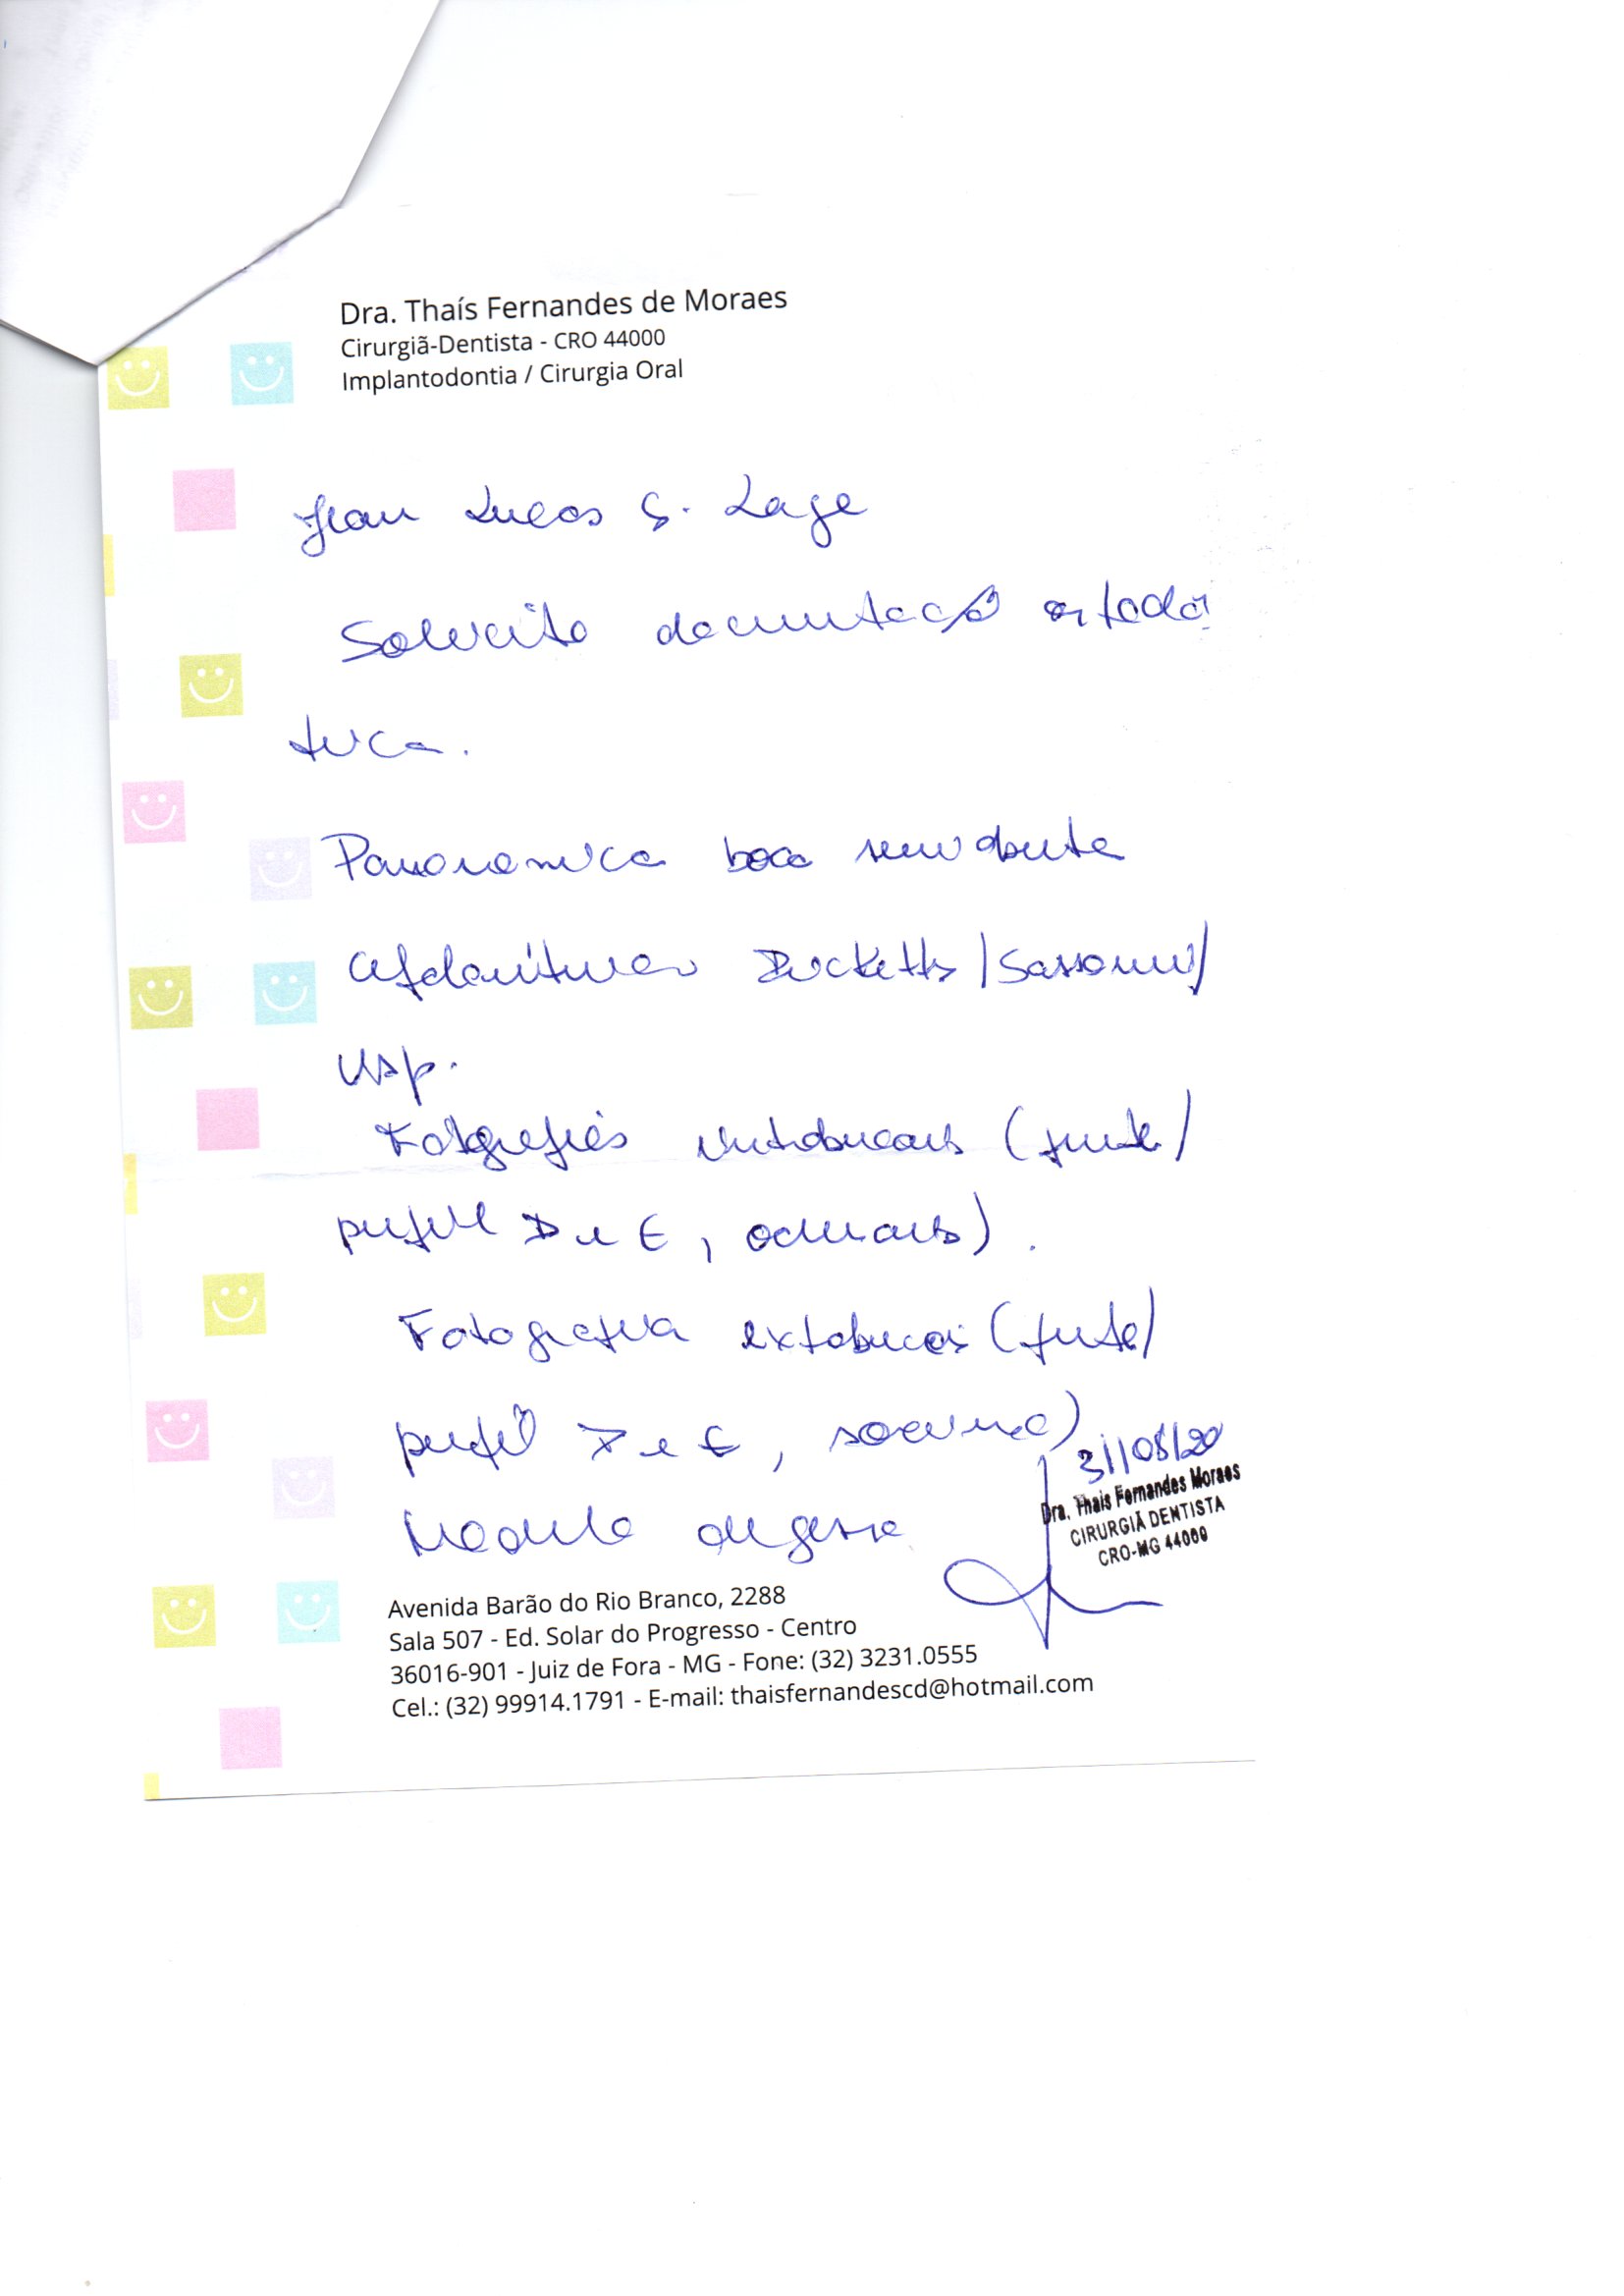 Dra. Thaís Fernandes de Moraes
Cirurgiã-Dentista - CRO 44000
Implantodontia / Cirurgia Oral
Jean Lucas G. Lage
Solicito documentação ortodôn
tica.
Panoramica boca semi aberta
Cefalométrica Ricketts/Sassouni/
Usp.
Fotografias intrabucais (frente/
perfil D e E, oclusais).
Fotografia extrabucais (frente/
perfil D e E, sorrindo)
31/08/20
Modelo de gesso
Dra. Thais Fernandes Moraes
CIRURGIÃ DENTISTA
CRO-MG 44000
Avenida Barão do Rio Branco, 2288
Sala 507 - Ed. Solar do Progresso - Centro
36016-901 - Juiz de Fora - MG - Fone: (32) 3231.0555
Cel.: (32) 99914.1791 - E-mail: thaisfernandescd@hotmail.com